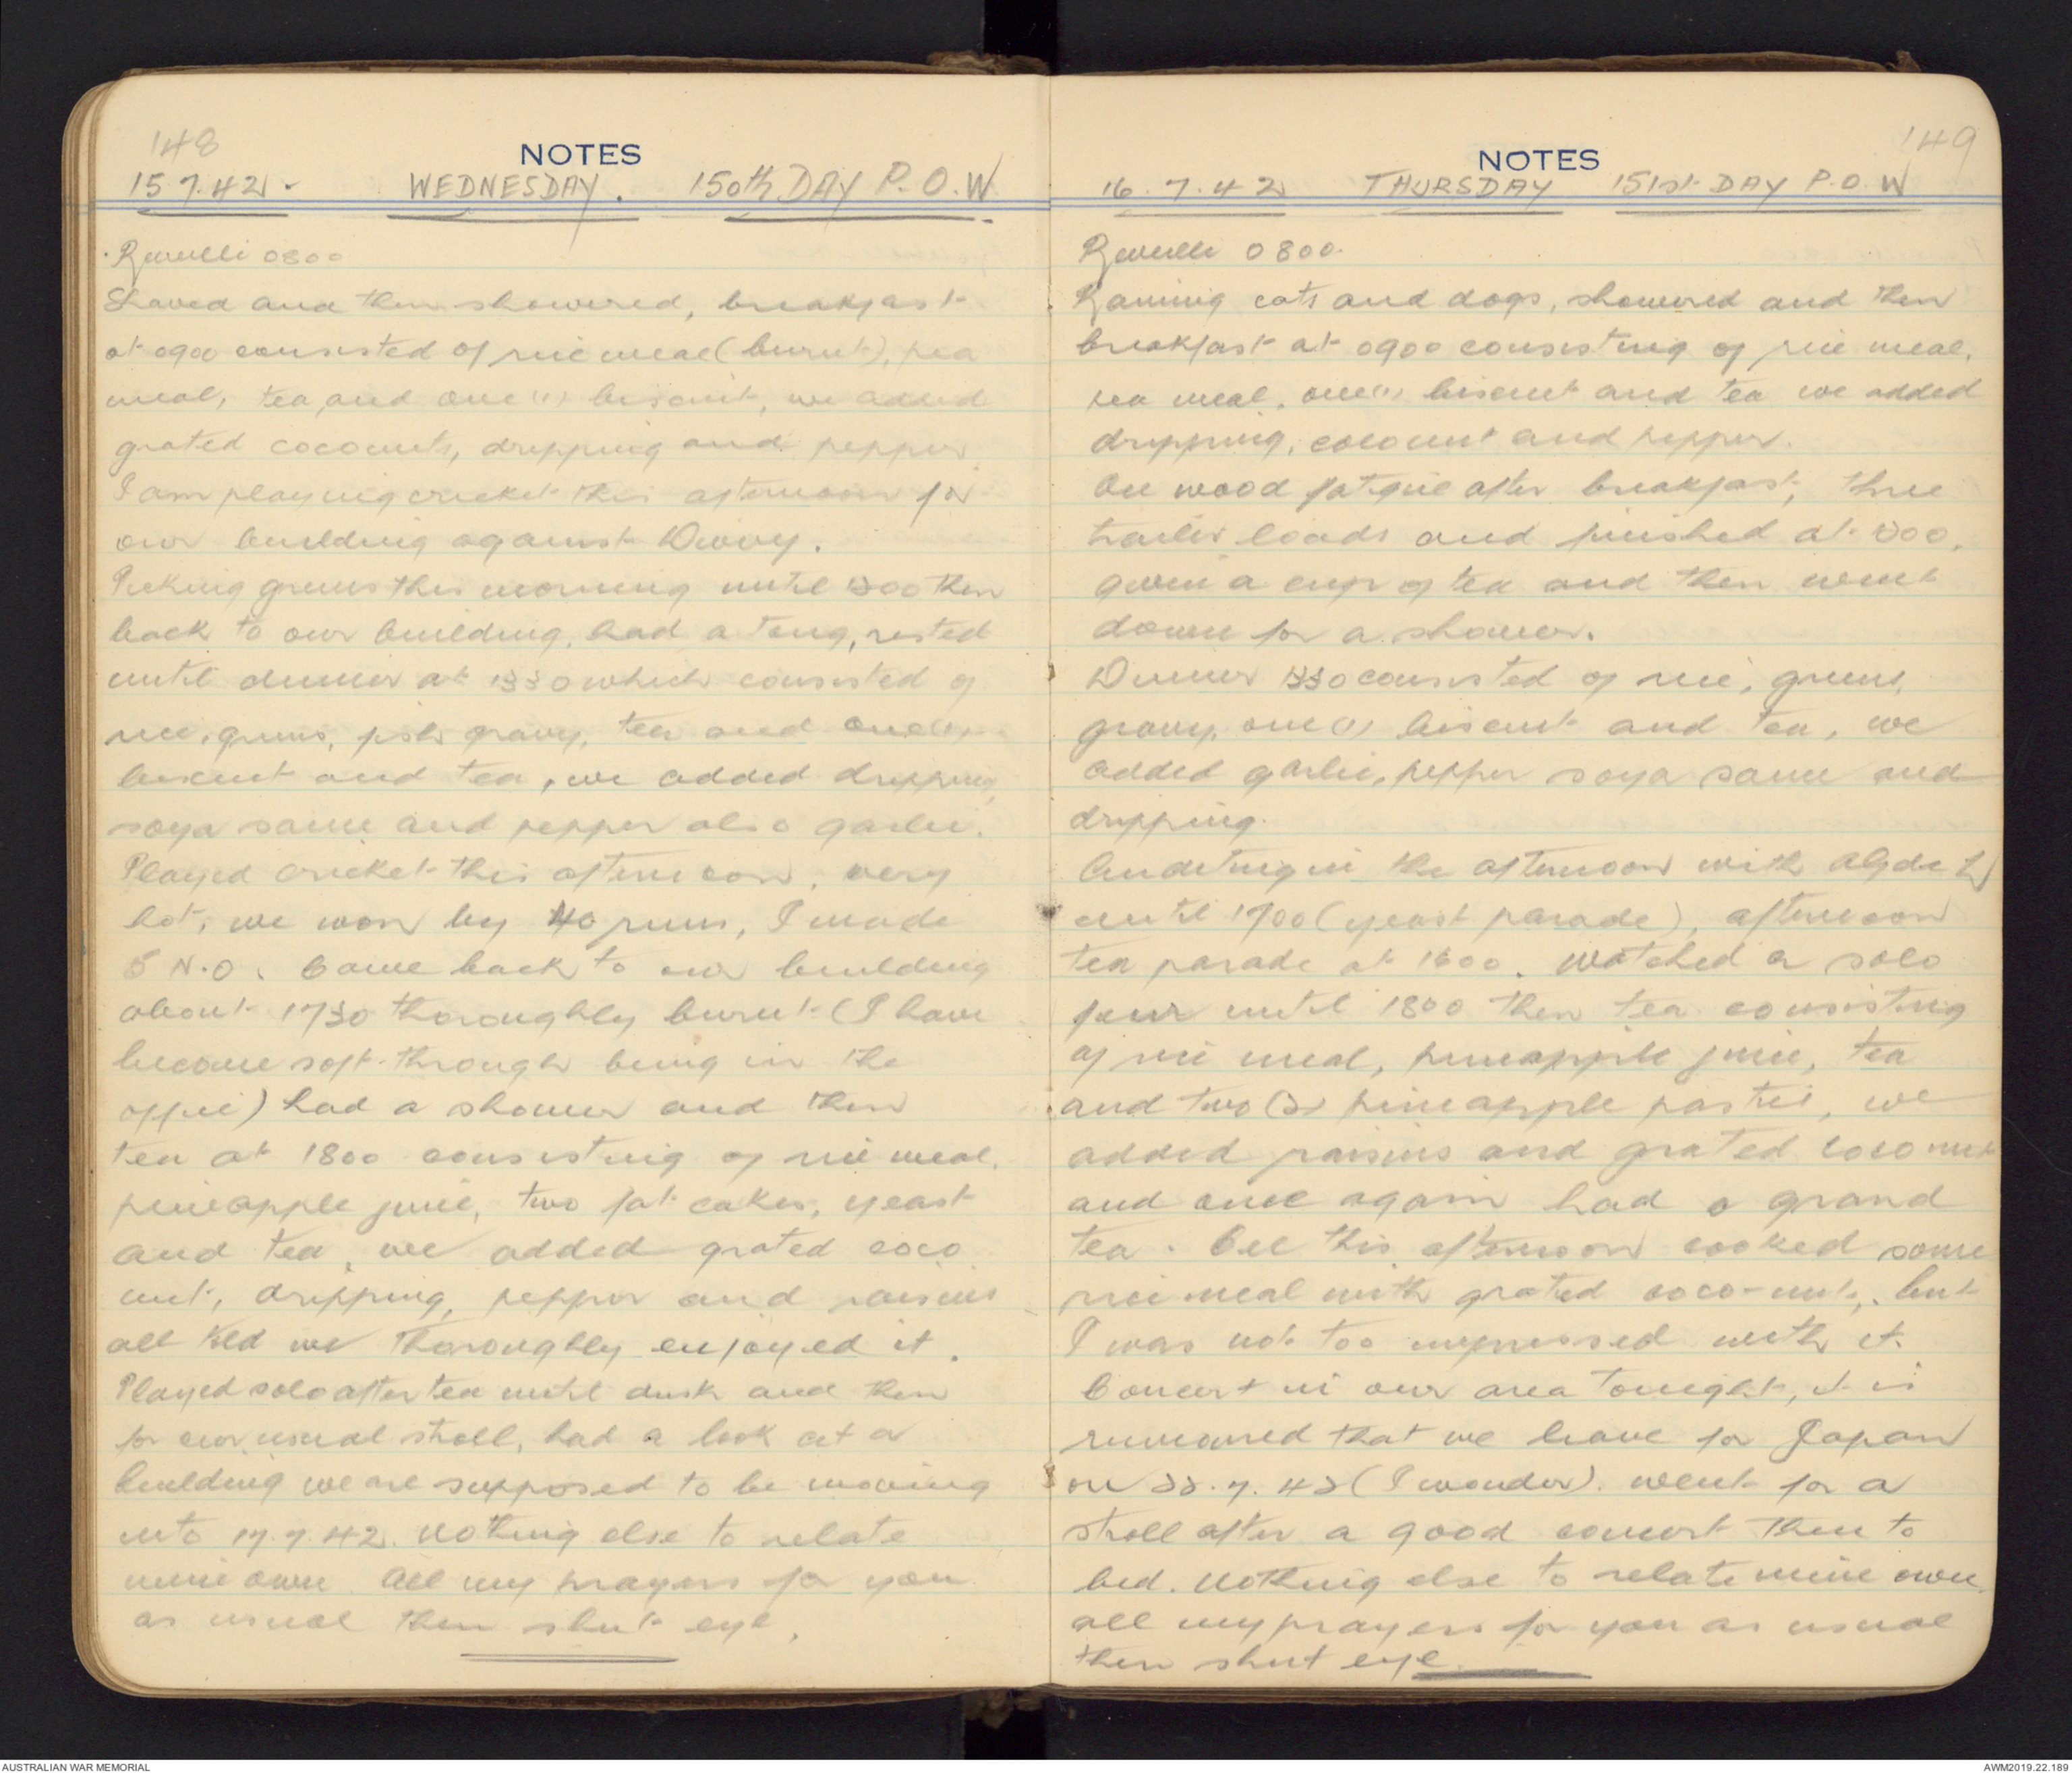 148
NOTES
15.7.42. WEDNESDAY. 150th DAY P.O.W
Reveille 0800
Shaved and then showered, breakfast
at 0900 consisted of rice meal (burnt), pea
meal, tea and one (1) biscuit, we added
grated coconuts, dripping and pepper
I am playing cricket this afternoon for
our building against Divvy.
Picking greens this morning until 1200 then
back to our building, had a tong, rested
until dinner at 1330 which consisted of
rice, greens, fish gravy, tea and one (1)
biscuit and tea, we added dripping,
soya sauce and pepper also garlic.
Played cricket this afternoon, very
hot, we won by 40 runs, I made
5 N.O. Came back to our building
about 1730 thoroughly burnt (I have
become soft through being in the
office) had a shower and then
tea at 1800 consisting of rice meal,
pineapple juice, two fat cakes, yeast
and tea, we added grated coco
nut, dripping, pepper and raisins
all told we thoroughly enjoyed it.
Played solo after tea until dusk and then
for our usual stroll, had a look at a
building we are supposed to be moving
into 17.7.42. Nothing else to relate
mine own. All my prayers for you
as usual then shut eye.
149
NOTES
16.7.42 THURSDAY 151st DAY P.O.W
Reveille 0800.
Raining cats and dogs, showered and then
breakfast at 0900 consisting of rice meal,
pea meal, one (1) biscuit and tea we added
dripping, coconut and pepper.
On wood fatigue after breakfast, three
trailer loads and finished at 1200,
given a cup of tea and then went
down for a shower.
Dinner 1330 consisted of rice, greens,
gravy, one (1) biscuit and tea, we
added garlic, pepper soya sauce and
dripping.
Auditing in the afternoon with
until 1700 (yeast parade), afternoon
tea parade at 1600. Watched a solo
four until 1800 then tea consisting
of rice meal, pineapple juice, tea
and two (2) pineapple pasties, we
added raisins and grated coconut
and once again had a grand
tea. this afternoon cooked some
rice meal with grated coco-nut, but
I was not too impressed with it.
Concert in our area tonight, it is
rumoured that we leave for Japan
on 22.7.42 (I wonder). Went for a
stroll after a good concert then to
bed. Nothing else to relate mine own,
all my prayers for you as usual
then shut eye
AUSTRALIAN WAR MEMORIAL
AWM2019.22.189